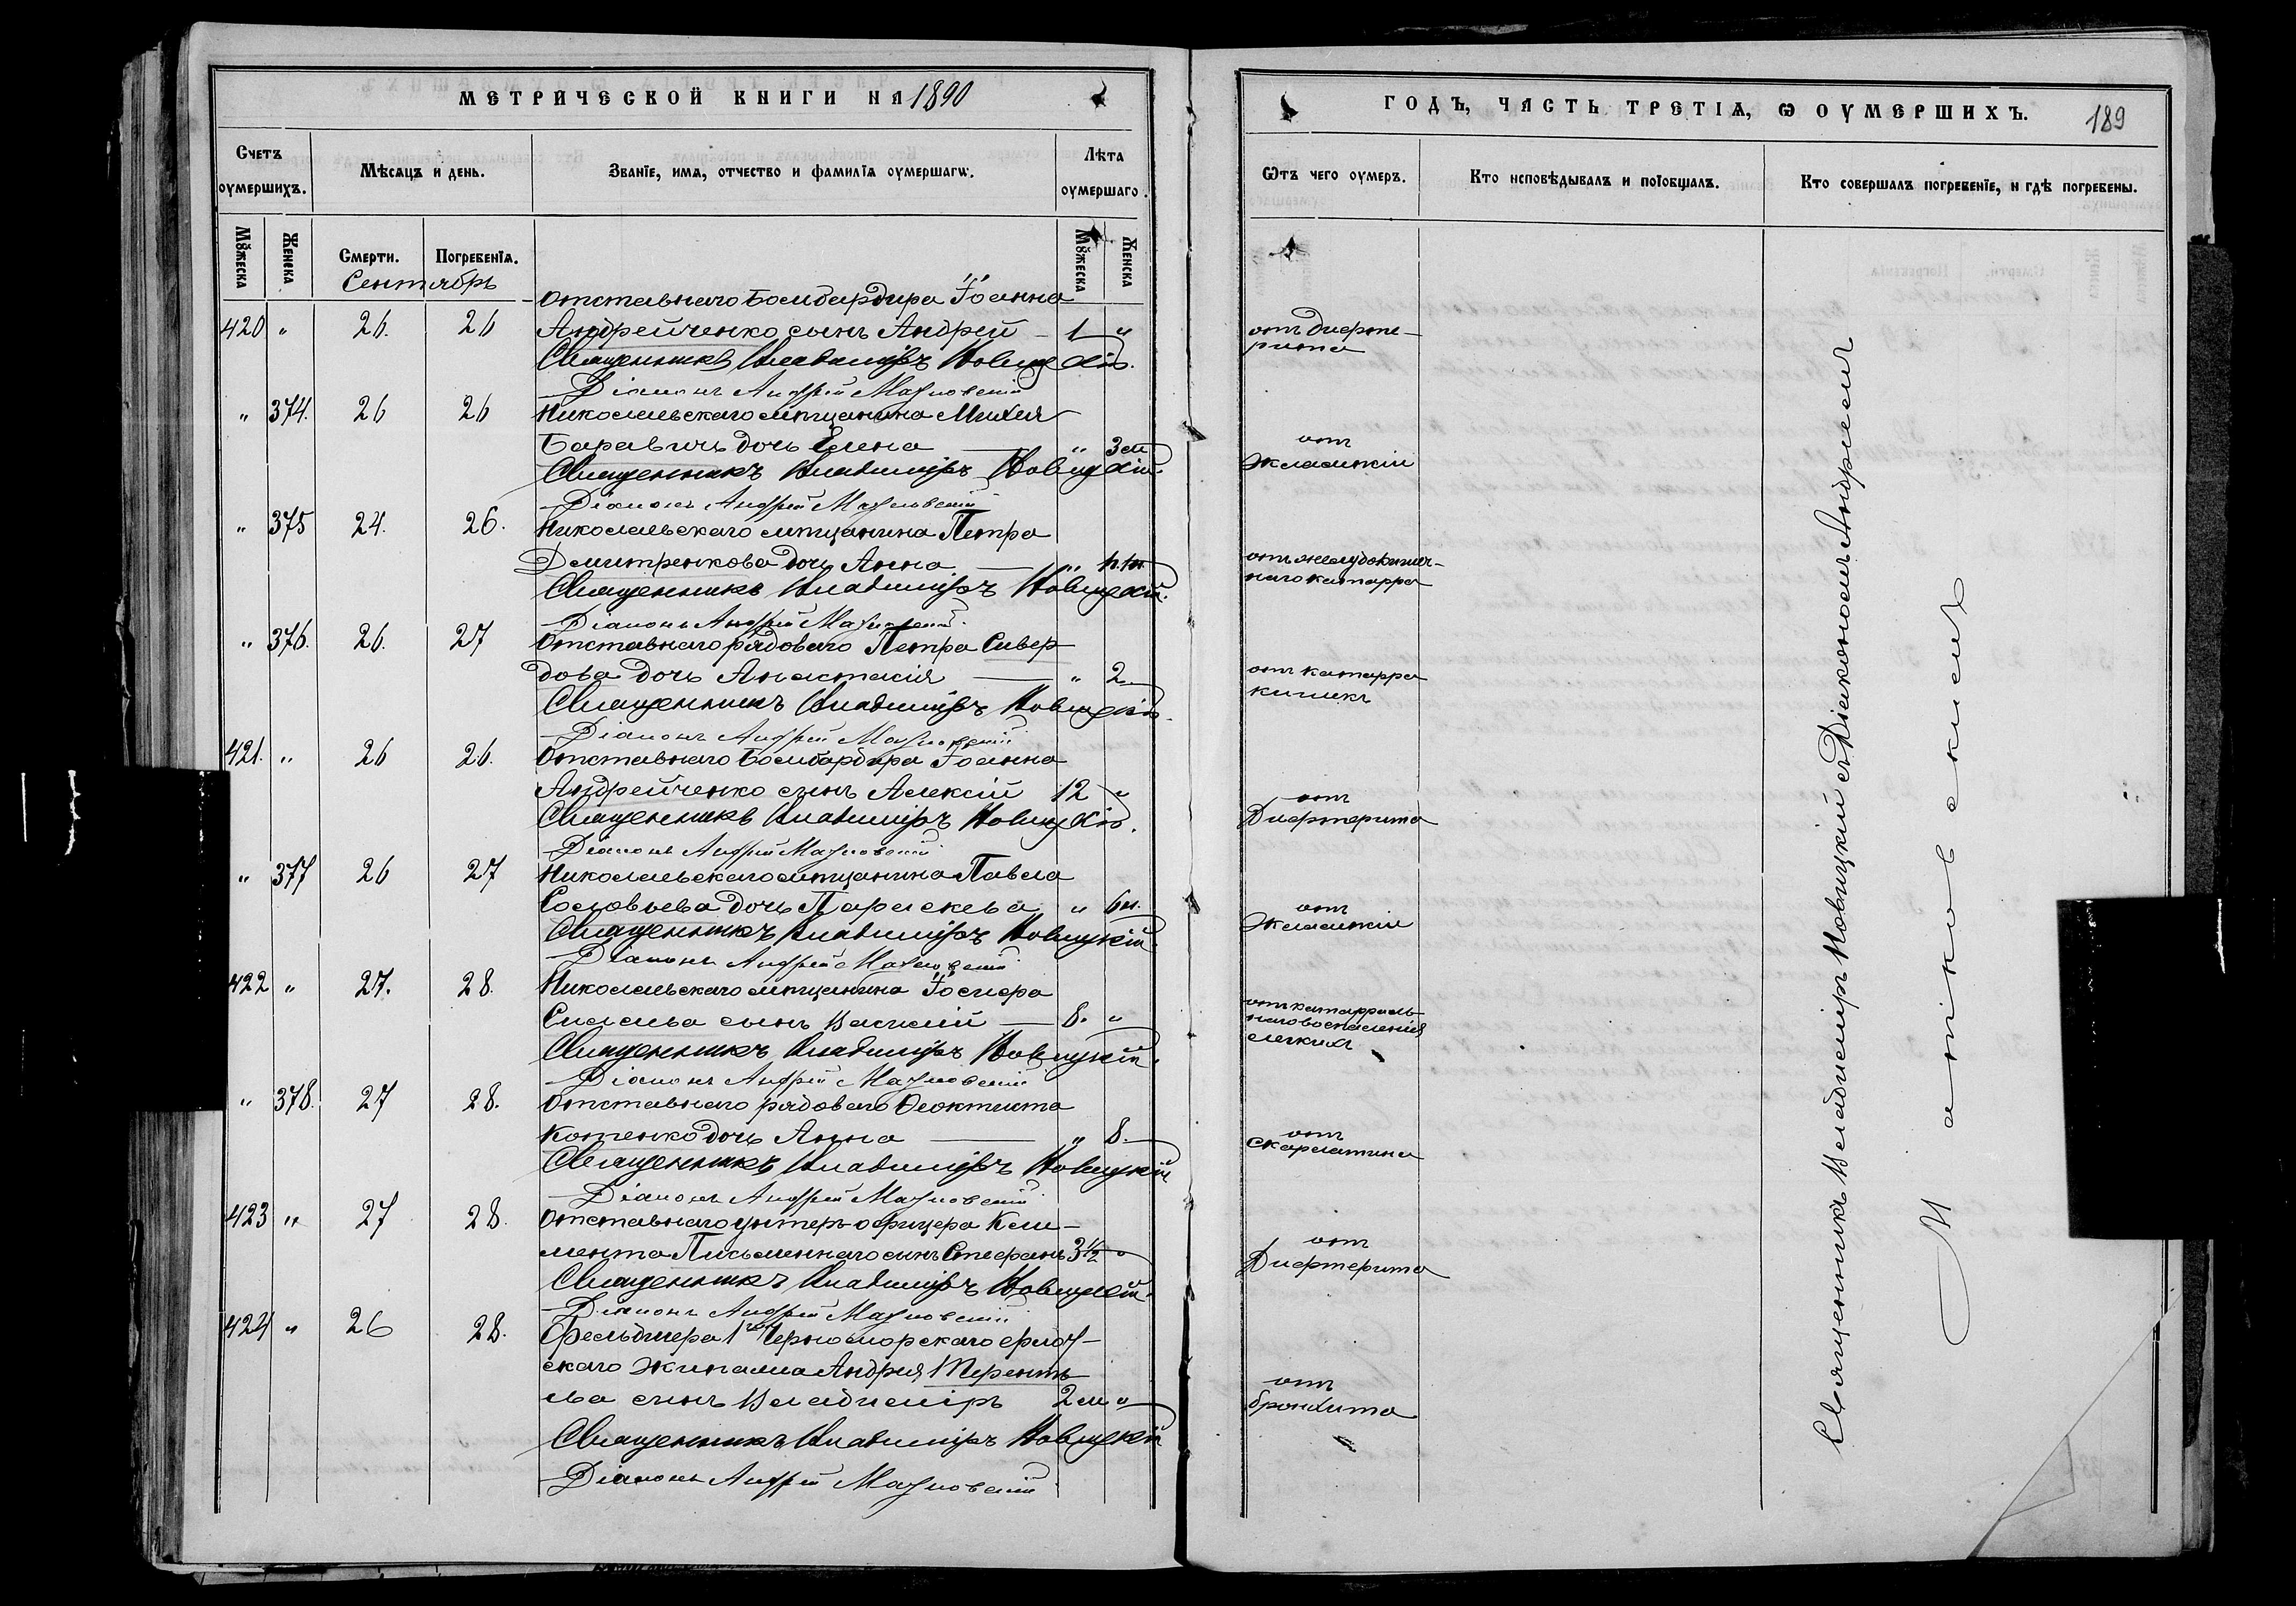 МЕТРИЧЕСКОЙ КНИГИ НА 1890
Счетъ оумершихъ.
Мѣсяцъ и день.
Званїе, имя, отчество и фамилїя оумершагѡ.
Лѣта оумершаго.
Мꙋжеска
Женска
Смерти.
Погребенїя.
Мꙋжеска
Женска
Сентябрь
Отставнаго Бомбардира Іоанна
420 " 26. 26 Андрейченко сынъ Андрей — 1 "
Священникъ Владиміръ Новицкій.
Діаконъ Андрей
" 374. 26 26 Николаевскаго мѣщанина
доч Елена — " 3 м
Священникъ Владиміръ Новицкій.
Діаконъ Андрей
" 375 24. 26. Николаевскаго мѣщанина Петра
Дмитренкова дочь Анна — "
Священникъ Владиміръ Новицкій.
Діаконъ Андрей
" 376. 26. 27 Отставнаго рядоваго Петра Сивер
дова дочь Анастасія — " 2
Священникъ Владиміръ Новицкій.
Діаконъ Андрей
421. " 26 26. Отставнаго Бомбардира Іоанна
Андрейченко сынъ Алексій 12 "
Священникъ Владиміръ Новицкій.
Діаконъ Андрей
" 377 26 27 Николаевскаго мѣщанина Павла
Соловьева дочь Параскева " 6 н.
Священникъ Владиміръ Новицкій.
Діаконъ Андрей
422 " 27. 28. Николаевскаго мѣщанина Іосифа
сынъ Василій — 8. "
Священникъ Владиміръ Новицкій.
Діаконъ Андрей
" 378. 27 28. Отставнаго рядоваго Ѳеоктиста
Котенко дочь Анна — " 8.
Священникъ Владиміръ Новицкій
Діаконъ Андрей
423 " 27 28. Отставнаго унтеръ-офицера Кли-
мента Письменнаго сынъ Стефанъ 3½ "
Священникъ Владиміръ Новицкій.
Діаконъ Андрей
424 " 26 28. Фельдшера 1го Черноморскаго флот-
скаго экипажа Андрея Теренть
ева сынъ Владиміръ 2 м "
Священникъ Владиміръ Новицкій
Діаконъ Андрей
ГОДЪ, ЧАСТЬ ТРЕТІѦ, Ѡ ОУМЕРШИХЪ.
189
Ѿтъ чего оумеръ.
Кто исповѣдывалъ и пріобщалъ.
Кто совершалъ погребенїе, и гдѣ погребены.
отъ дифте-
рита
отъ
Эклампсіи
отъ желудокишеч-
наго катарра
отъ катарра
кишекъ
отъ
Дифтерита
отъ
Эклампсіи
отъ катарраль-
наго воспаленія
легкихъ
отъ
скарлатины
отъ
Дифтерита
отъ
бронхита
Священникъ Владиміръ Новицкій съ Діакономъ Андреемъ